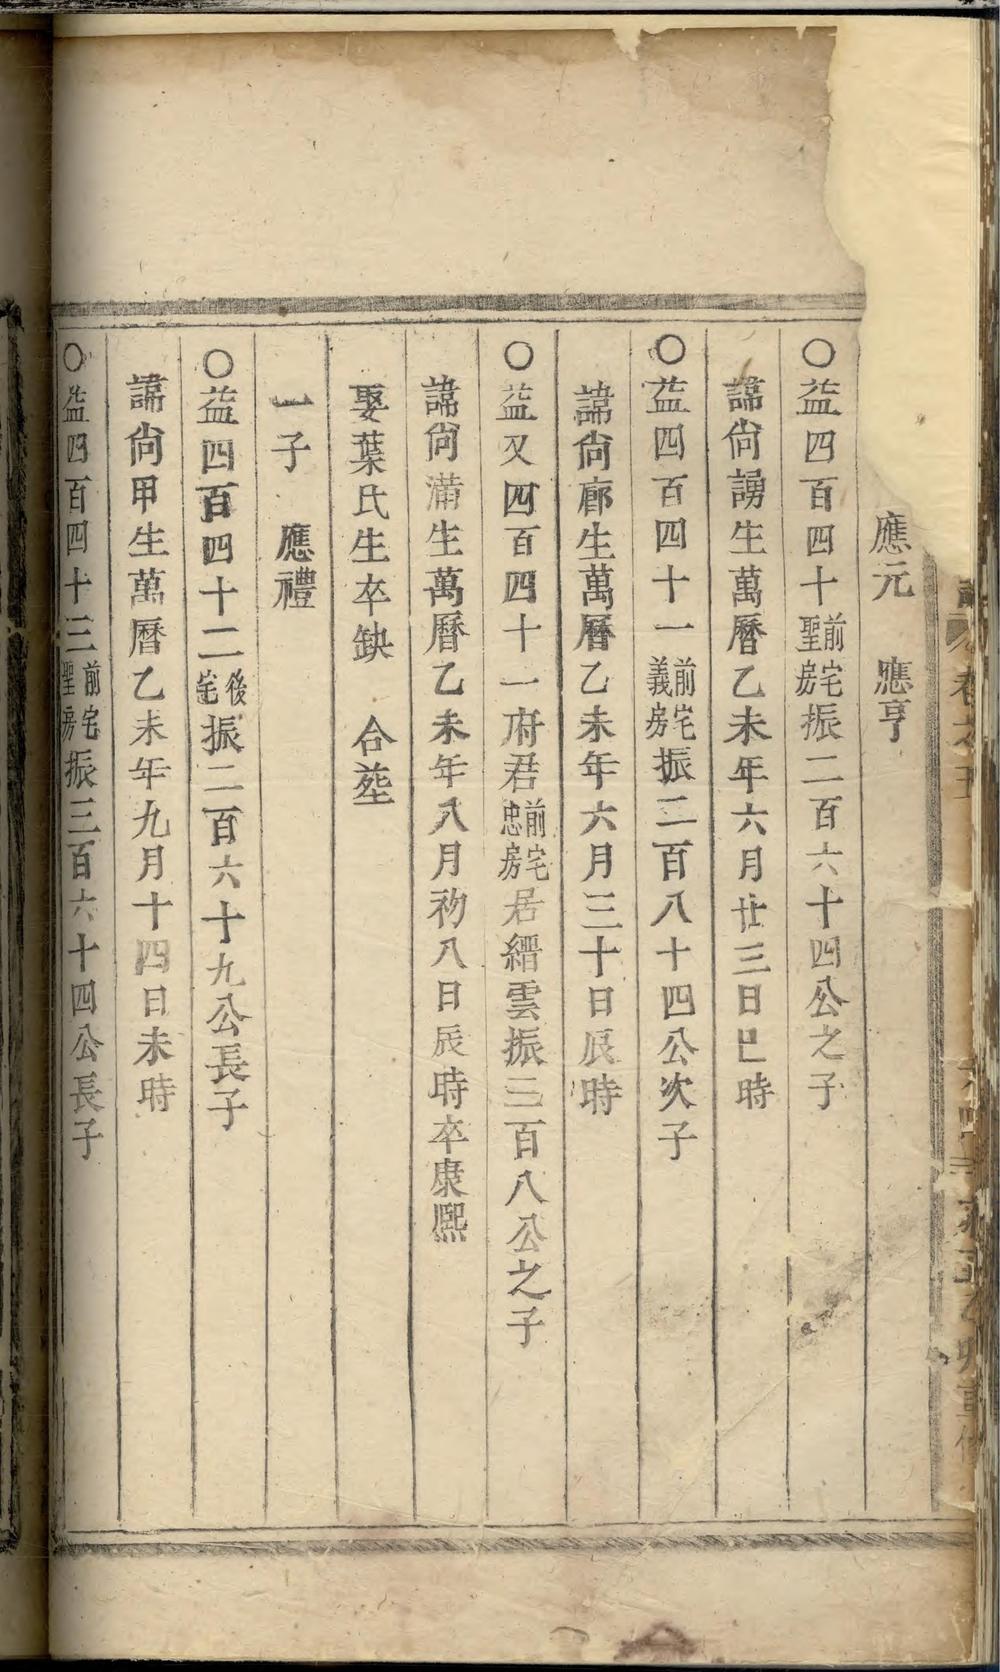 應元　應亨
○益四百四十前宅聖房振二百六十四公之子
諱尙謭生萬曆乙未年六月廿三日巳時
○益四百四十一前宅義房振二百八十四公次子
諱尙廊生萬曆乙未年六月三十日辰時
○益又四百四十一府君前宅忠房居縉雲振三百八公之子
諱尙滿生萬曆乙未年八月初八日辰時卒康熙
娶葉氏生卒缺　合塟
一子　應禮
○益四百四十二後宅振二百六十九公長子
諱尙甲生萬曆乙未年九月十四日未時
○益四百四十三前宅聖房振三百六十四公長子